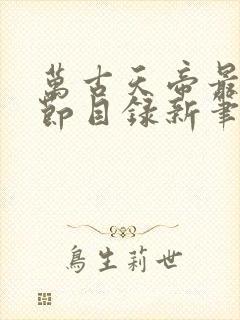 萬古天帝最
節目錄新筆
鳥生莉世